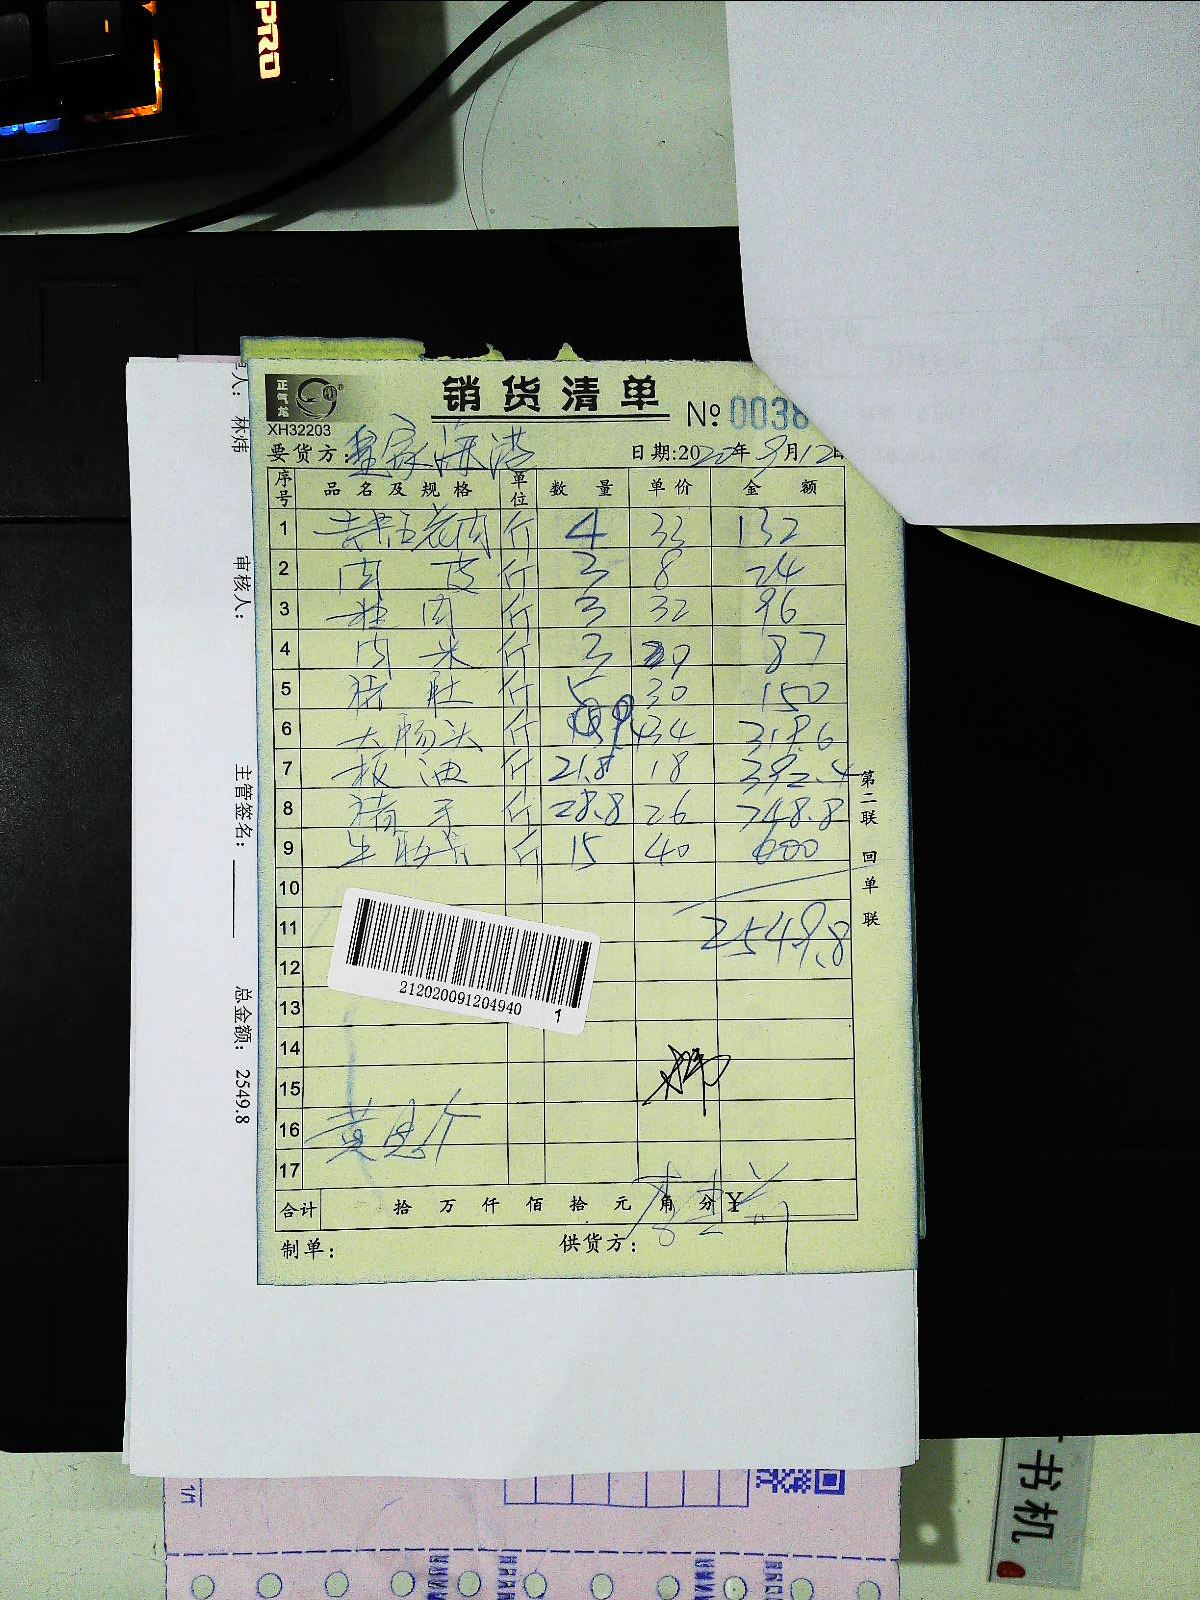 PRO
正气龙
XH32203
销货清单
№ 0038
要货方: 皇家海港
日期:2020年9月12日
序号 品名及规格 单位 数量 单价 金额
1 去皮五花肉 斤 4 33 132
2 肉皮 斤 3 8 24
3 肉 斤 3 32 96
4 肉米 斤 3 29 87
5 猪肚 斤 5 30 150
6 大肠头 斤 34 319.6
7 板油 斤 21.8 18 392.4
8 猪手 斤 28.8 26 748.8
9 生 斤 15 40 600
10
11 2549.8
12
13
14
15
16
17
212020091204940 1
合计 拾 万 仟 佰 拾 元 角 分 ¥
制单: 供货方:
第二联 回单联
人: 林炜
审核人:
主管签名:
总金额: 2549.8
1/1
书机